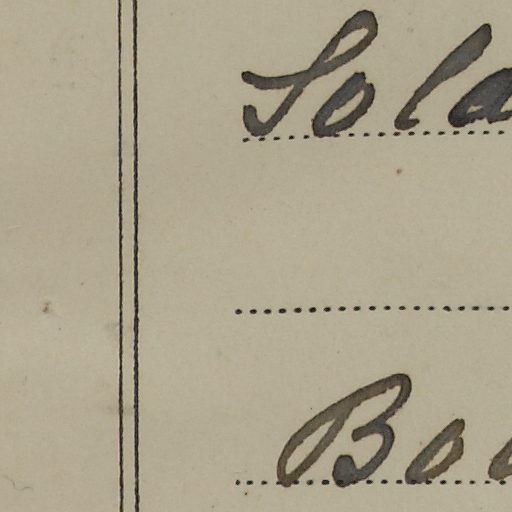 Sola
Boo